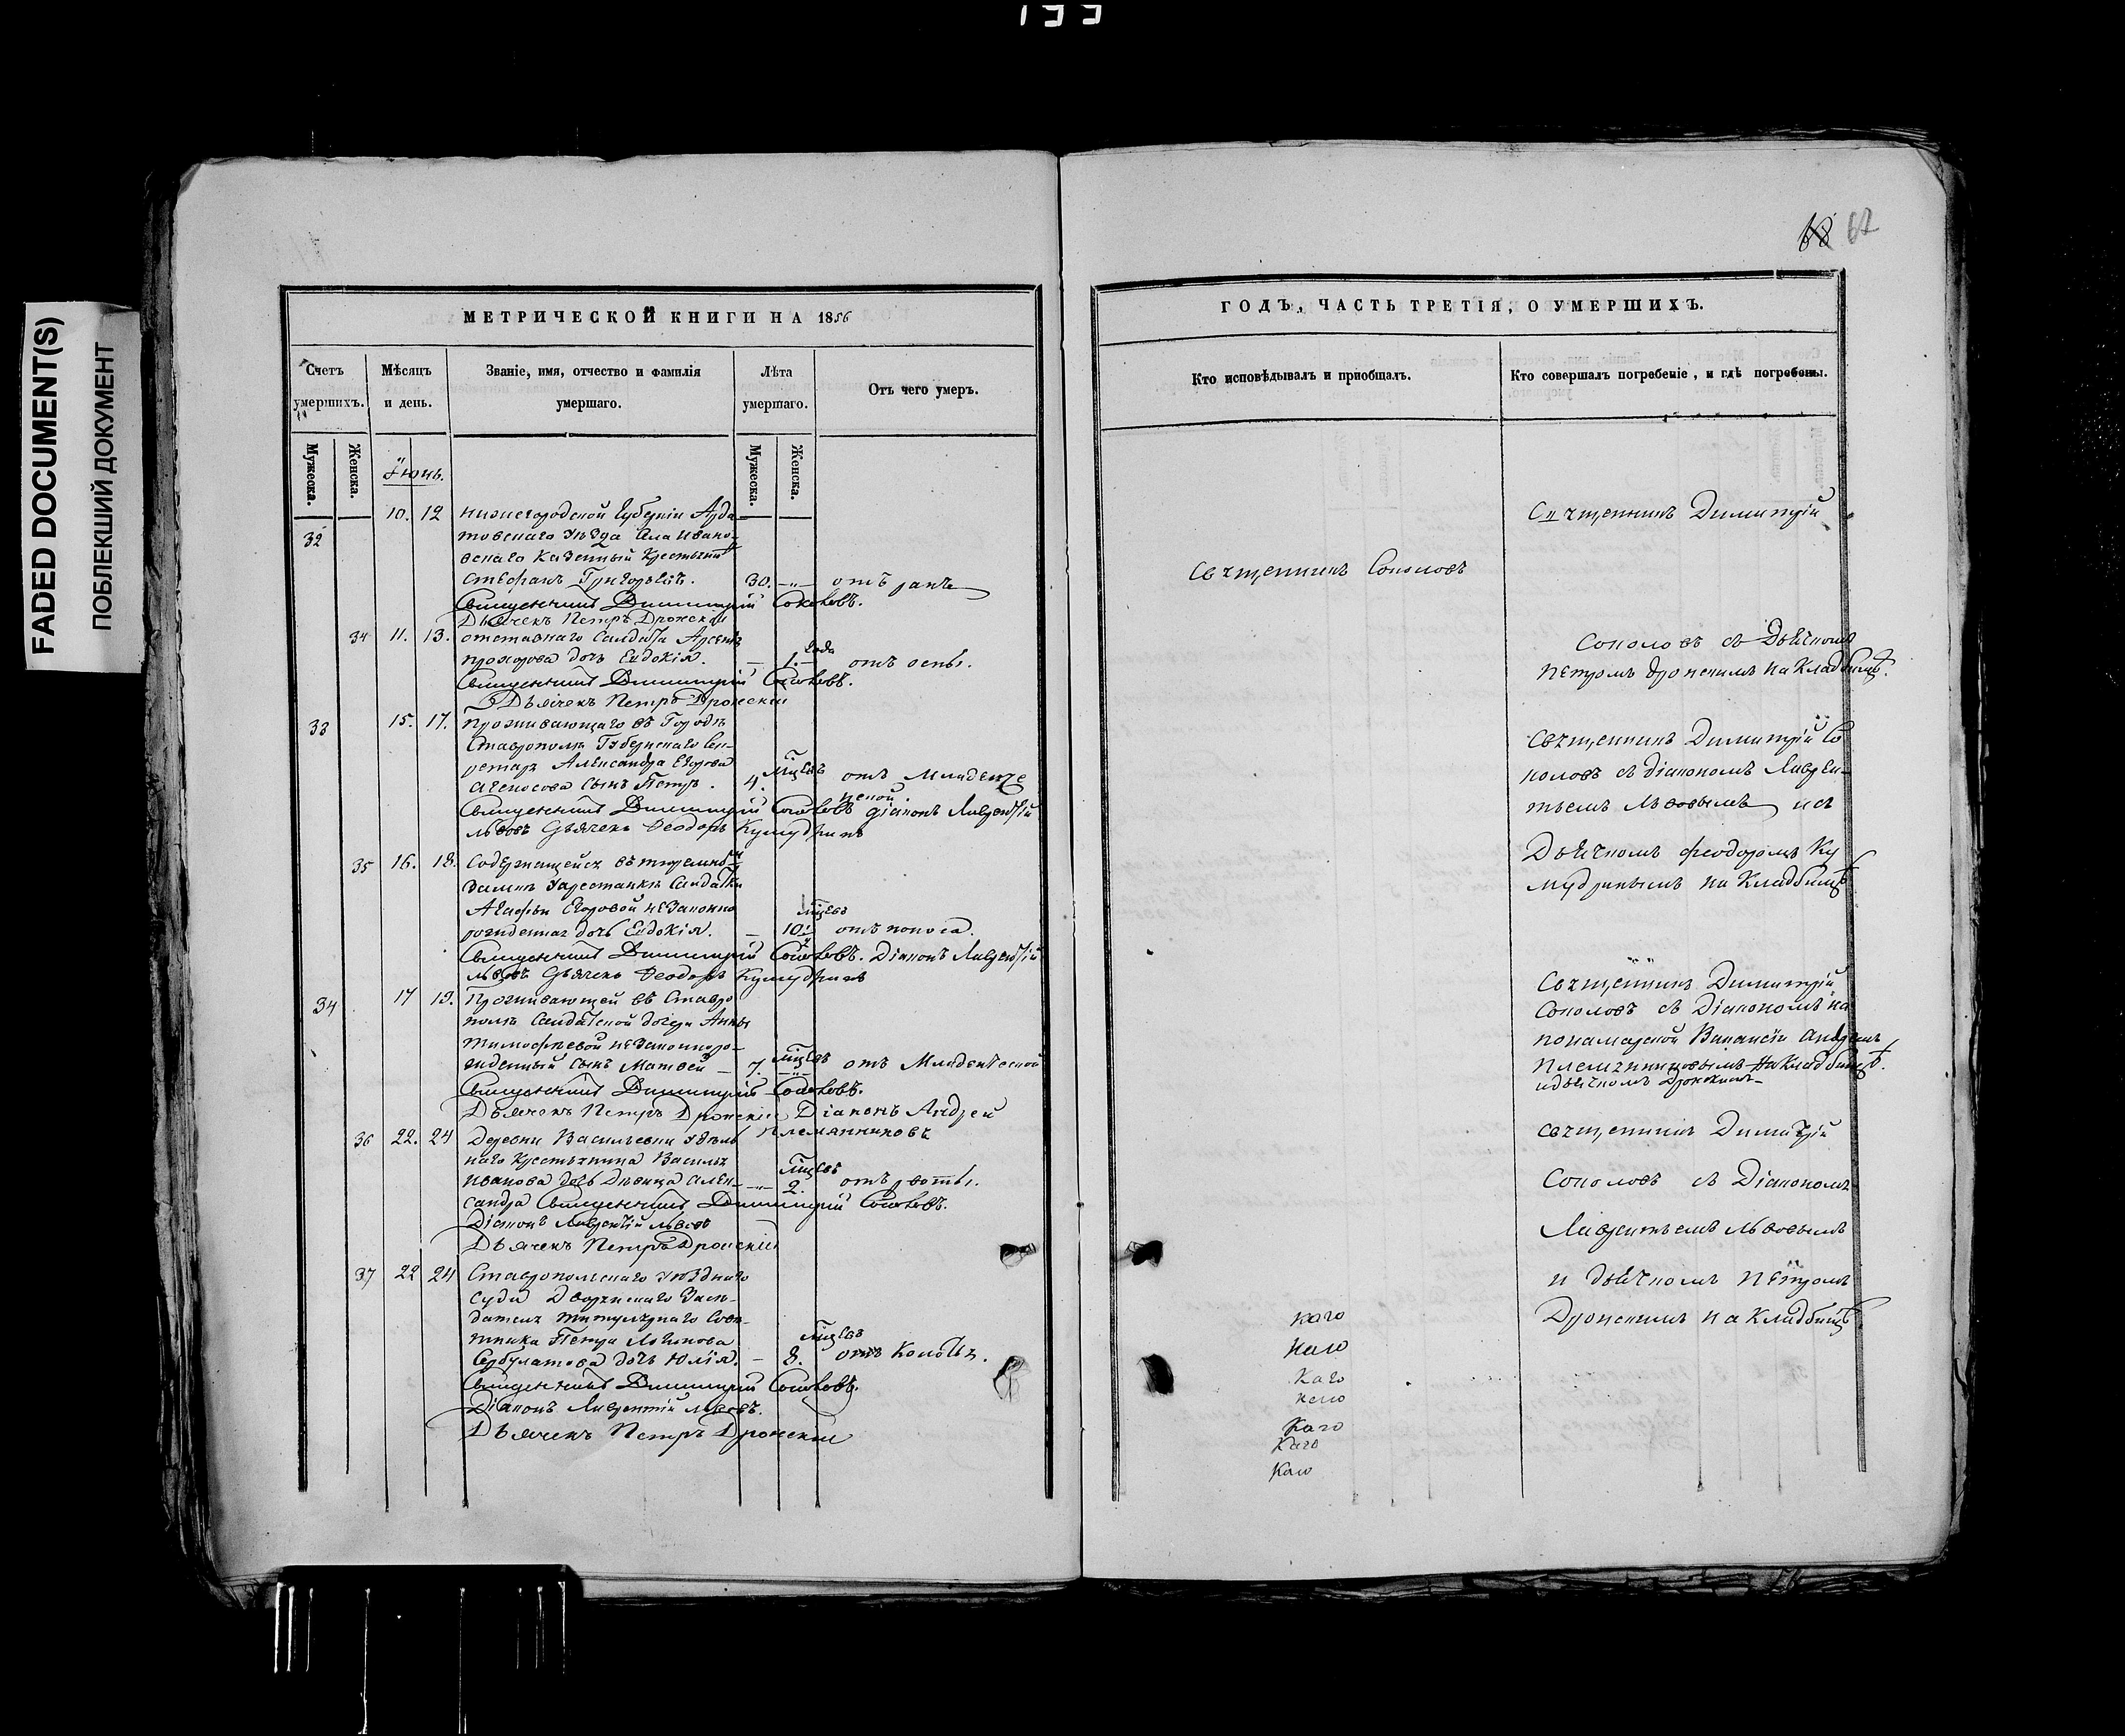 133
FADED DOCUMENT(S)
ПОБЛЕКШИЙ ДОКУМЕНТ
68 67
МЕТРИЧЕСКОЙ КНИГИ НА 1856
Счетъ умершихъ.
Мѣсяцъ и день.
Званіе, имя, отчество и фамилія умершаго.
Лѣта умершаго.
Отъ чего умеръ.
Мужеска.
Женска.
Мужеска.
Женска.
Іюнь.
10. 12 Нижегородской Губерніи Арда-
32 товскаго Уѣзда Села Ивано-
вскаго Казенный Крестьянинъ
Стефанъ Григорьевъ. 30. отъ ранъ
Священникъ Димитрій Соколовъ.
Дьячекъ Петръ Дронскій
34 11. 13. отставнаго Солдата
Прохорова дочь Евдокія. 1. года отъ оспы.
Священникъ Димитрій Соколовъ.
Дьячекъ Петръ Дронскій
33 15. 17. Проживающаго въ Городѣ
Ставрополѣ Губернскаго Сек-
ретаря Александра Егорова
сынъ Петръ. 4. мцсвъ отъ Младенче
ской
Священникъ Димитрій Соколовъ діаконъ Лаврентій
Львовъ Дьячекъ Феодоръ Кумудринъ
35 16. 18. Содержащейся въ тюремномъ
замкѣ арестантки Солдатки
Агафьи Егоровой незаконно
рожденная дочь Евдокія. 10 1/2 мцсвъ отъ поноса.
Священникъ Димитрій Соколовъ. Діаконъ Лаврентій
Львовъ Дьячекъ Феодоръ Кумудринъ
34 17 19. Проживающей въ Ставро
полѣ Солдатской дочери Анны
Тимофѣевой незаконноро-
жденный сынъ Матвей 7. мцсвъ отъ Младенческой
Священникъ Димитрій Соколовъ.
Дьячекъ Петръ Дронскій Діаконъ Андрей
Племянниковъ
36 22. 24 Деревни Васильевки удѣль
наго Крестьянина Василья
Иванова дочь Дѣвица Алек- 2. мцсвъ отъ рвоты.
сандра Священникъ Димитрій Соколовъ.
Діаконъ Лаврентій Львовъ
Дьячекъ Петръ Дронскій
37 22 24 Ставропольскаго Уѣзднаго
Суда Дворянскаго Засѣ-
дателя Титулярнаго Совѣ-
тника Петра Логинова
дочь Юлія. 8. мцсвъ отъ
Священникъ Димитрій Соколовъ.
Діаконъ Лаврентій Львовъ.
Дьячекъ Петръ Дронскій
ГОДЪ, ЧАСТЬ ТРЕТІЯ, О УМЕРШИХЪ.
Кто исповѣдывалъ и пріобщалъ.
Кто совершалъ погребеніе, и гдѣ погребены.
Священникъ Димитрій
Священникъ Соколовъ
Соколовъ съ Дьячкомъ
Петромъ Дронскимъ на Кладбищѣ.
Священникъ Димитрій Со
коловъ съ діакономъ Лаврен-
тьемъ Львовымъ и съ
Дьячкомъ Феодоромъ Ку
мудринымъ на Кладбищѣ
Священникъ Димитрій
Соколовъ съ Діакономъ на
понамарской Вакансіи Андреемъ
Племянниковымъ на Кладбищѣ.
и дьячкомъ Дронскимъ
Священникъ Димитрій
Соколовъ съ Діакономъ
Лаврентьемъ Львовымъ
и дьячкомъ Петромъ
Дронскимъ на Кладбищѣ